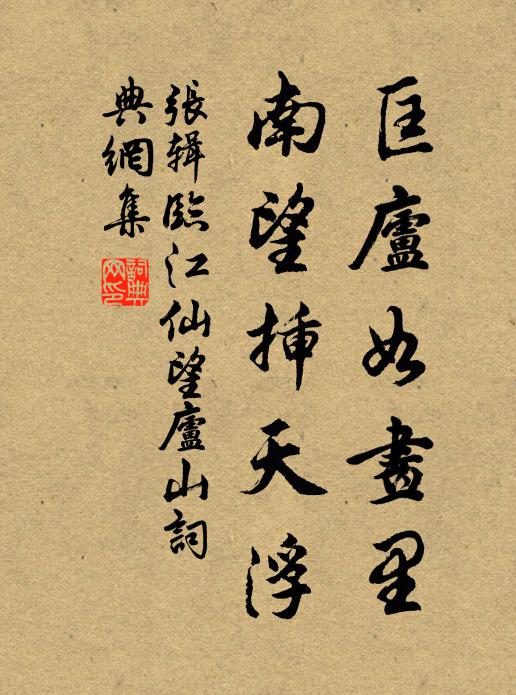 匡廬如畫里
南望插天浮
張輯臨江仙望廬山詞
典網集
詞典網印